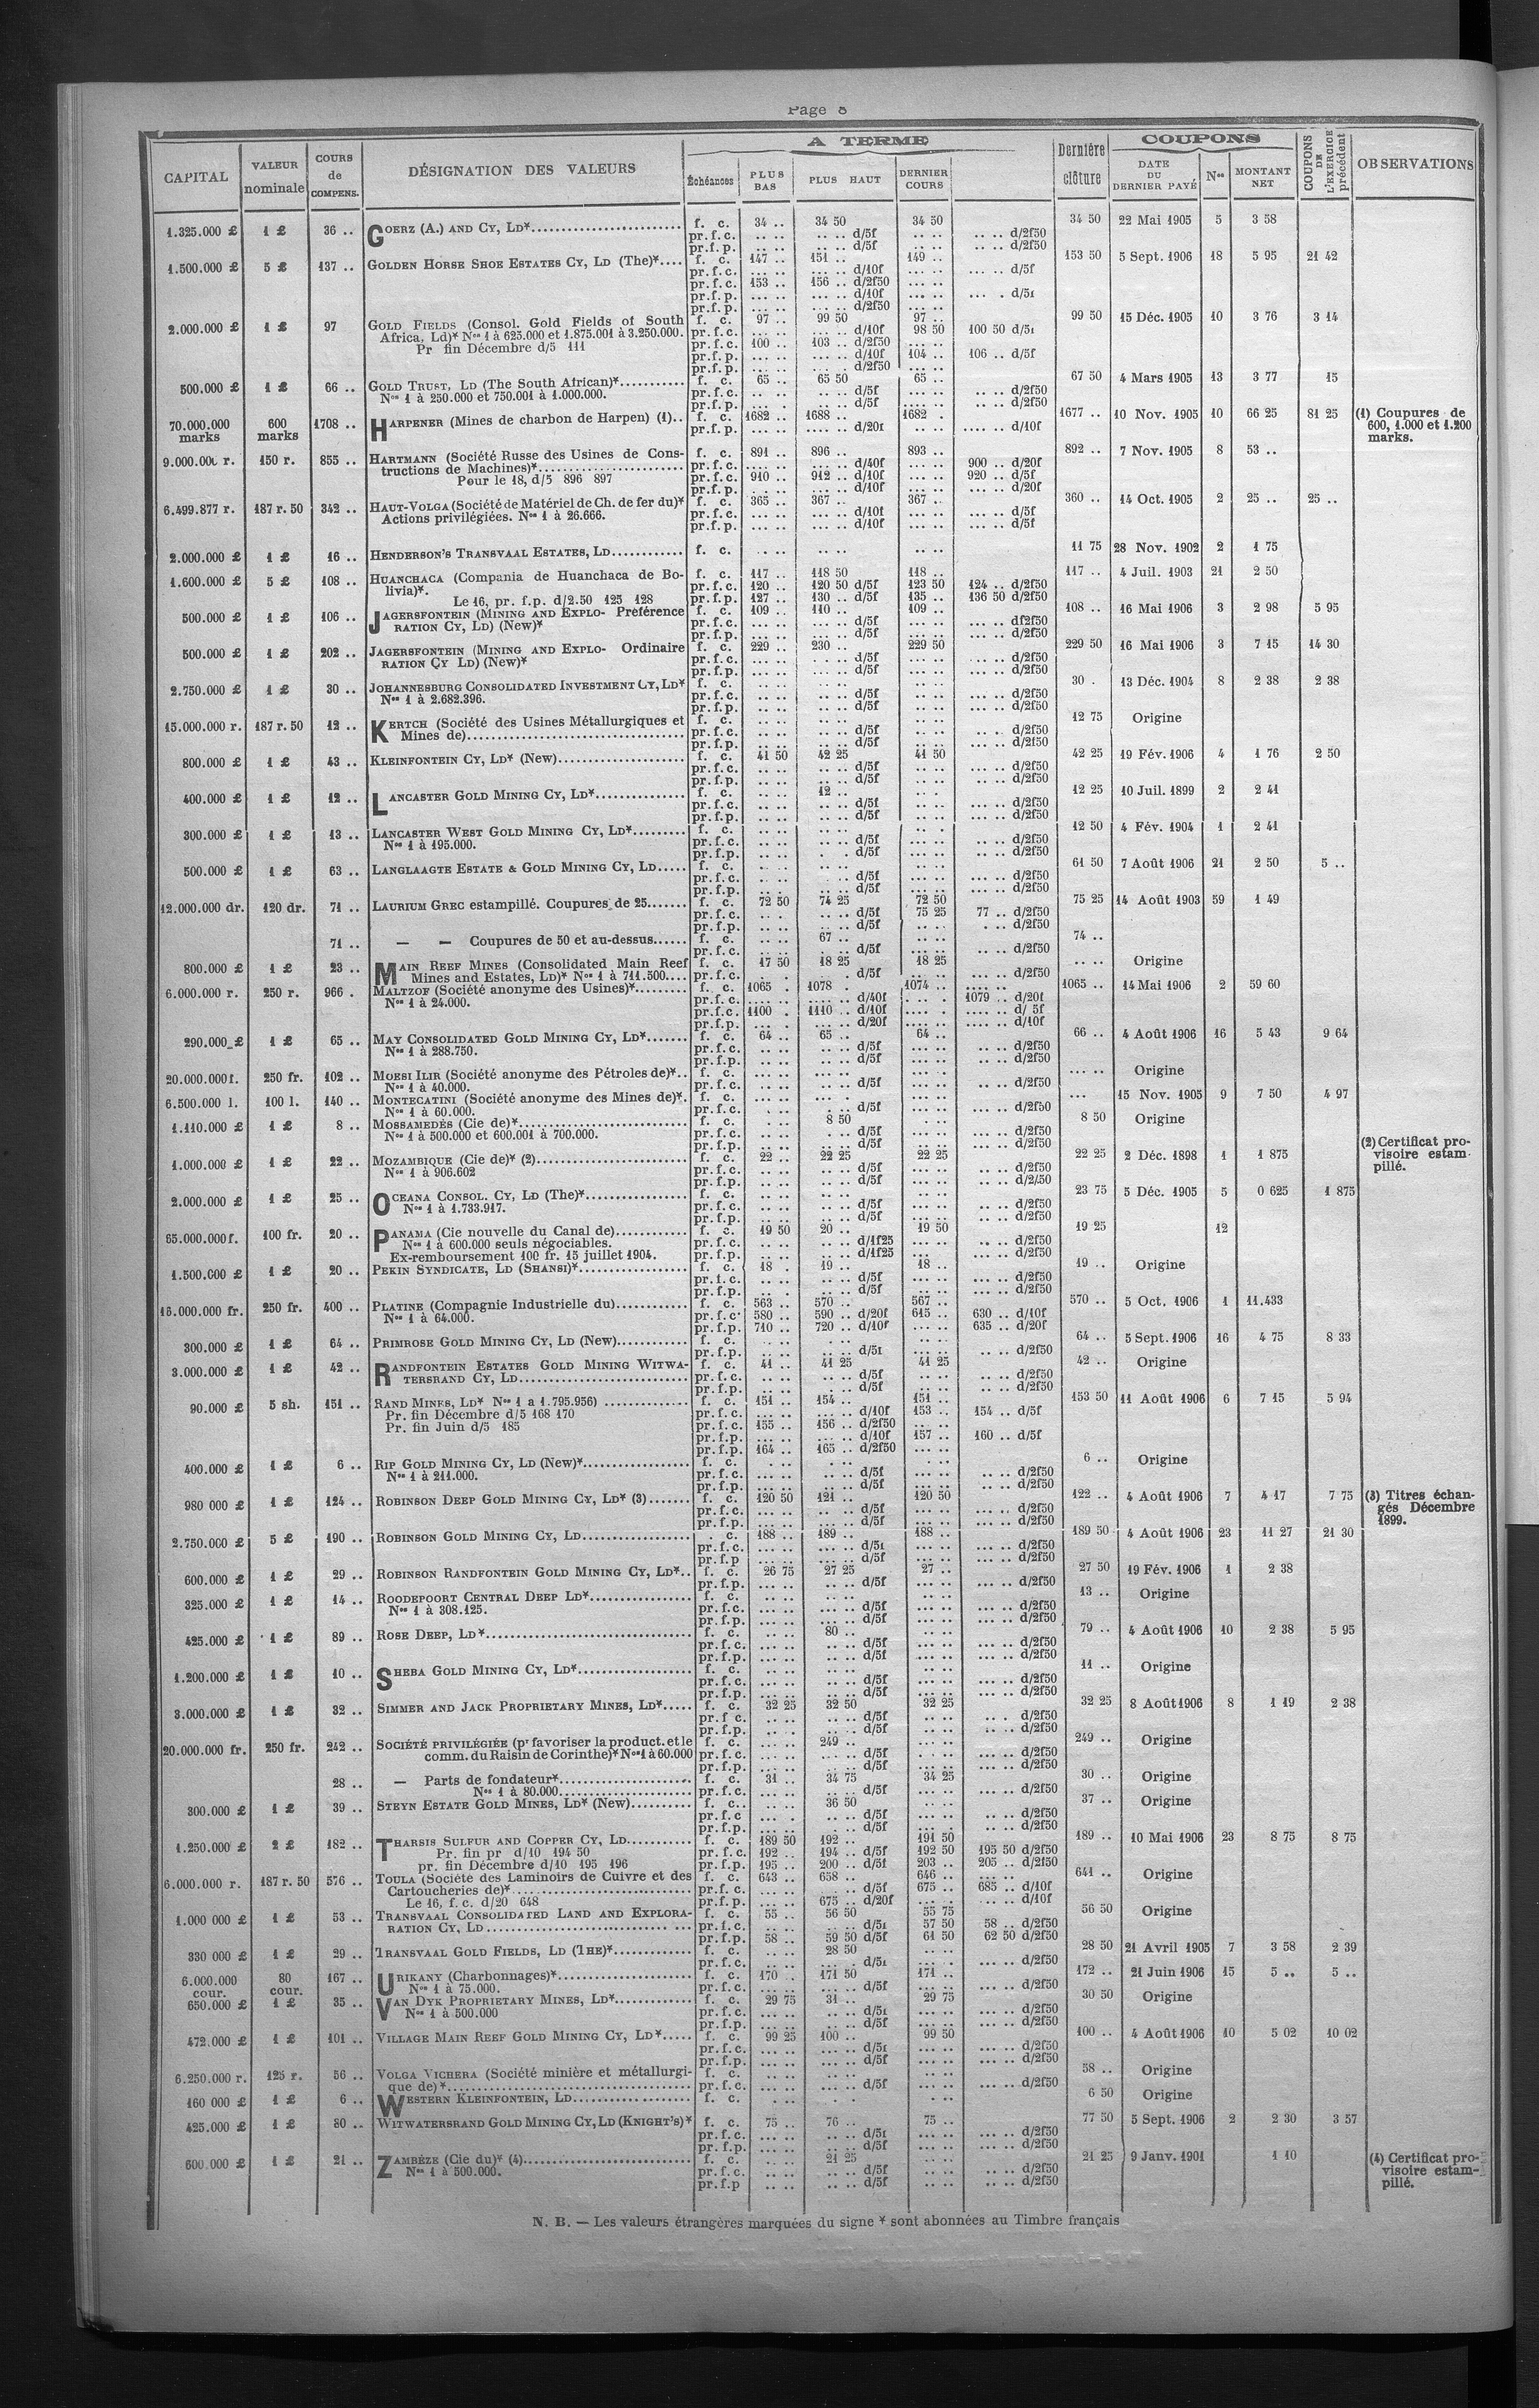 Page 8
CAPITAL | VALEUR nominale | COURS de COMPENS. | DÉSIGNATION DES VALEURS | A TERME | Dernière clôture | COUPONS | COUPONS DE L'EXERCICE précédent | OBSERVATIONS
Échéances | PLUS BAS | PLUS HAUT | DERNIER COURS | DATE DU DERNIER PAYÉ | Nos | MONTANT NET
1.325.000 £ | 1 £ | 36 .. | GOERZ (A.) AND CY, LD* | f. c. | 34 .. | 34 50 | 34 50 | 34 50 | 22 Mai 1905 | 5 | 3 58
pr.f.c. | .. .. | .. .. d/5f | .. .. | .. .. d/2f50
pr.f.p. | .. .. | .. .. d/5f | .. .. | .. .. d/2f50
1.500.000 £ | 5 £ | 137 .. | GOLDEN HORSE SHOE ESTATES CY, LD (The)* | f. c. | 147 .. | 151 .. | 149 .. | 153 50 | 5 Sept. 1906 | 18 | 5 95 | 21 42
pr.f.c. | ... .. | ... .. d/10f | ... .. | ... .. d/5f
pr.f.c. | 153 .. | 156 .. d/2f50 | ... ..
pr.f.p. | ... .. | ... .. d/10f | ... .. | ... . d/5f
pr.f.p. | ... .. | ... .. d/2f50 | ... ..
2.000.000 £ | 1 £ | 97 | GOLD FIELDS (Consol. Gold Fields of South | f. c. | 97 .. | 99 50 | 97 .. | 99 50 | 15 Déc. 1905 | 10 | 3 76 | 3 14
Africa, Ld)* Nos 1 à 625.000 et 1.875.001 à 3.250.000. | pr.f.c. | ... .. | ... .. d/10f | 98 50 | 100 50 d/5f
Pr fin Décembre d/5 111 | pr.f.c. | 100 .. | 103 .. d/2f50 | ... ..
pr.f.p. | ... .. | ... .. d/10f | 104 .. | 106 .. d/5f
pr.f.p. | ... .. | ... .. d/2f50 | ... ..
500.000 £ | 1 £ | 66 .. | GOLD TRUST, LD (The South African)* | f. c. | 65 .. | 65 50 | 65 .. | 67 50 | 4 Mars 1905 | 13 | 3 77 | 15
Nos 1 à 250.000 et 750.001 à 1.000.000. | pr.f.c. | .. .. | .. .. d/5f | .. .. | .. .. d/2f50
pr.f.p. | ... . | ... .. d/5f | ... .. | .. .. d/2f50
70.000.000 marks | 600 marks | 1708 .. | HARPENER (Mines de charbon de Harpen) (1).. | f. c. | 1682 .. | 1688 .. | 1682 . | 1677 .. | 10 Nov. 1905 | 10 | 66 25 | 81 25 | (1) Coupures de 600, 1.000 et 1.200 marks.
pr.f.p. | ... .. | .... .. d/20f | .. .. | .... .. d/10f
9.000.000 r. | 150 r. | 855 .. | HARTMANN (Société Russe des Usines de Cons- | f. c. | 891 .. | 896 .. | 893 .. | 892 .. | 7 Nov. 1905 | 8 | 53 ..
tructions de Machines)* | pr.f.c. | ... .. | ... .. d/40f | ... .. | 900 .. d/20f
Pour le 18, d/5 896 897 | pr.f.c. | 910 .. | 912 .. d/10f | ... .. | 920 .. d/5f
pr.f.p. | ... .. | ... .. d/10f | ... .. | ... .. d/20f
6.499.877 r. | 187 r. 50 | 342 .. | HAUT-VOLGA (Société de Matériel de Ch. de fer du)* | f. c. | 365 .. | 367 .. | 367 .. | 360 .. | 14 Oct. 1905 | 2 | 25 .. | 25 ..
Actions privilégiées. Nos 1 à 26.666. | pr.f.c. | ... .. | ... .. d/10f | ... .. | ... .. d/5f
pr.f.p. | ... .. | ... .. d/10f | ... .. | ... .. d/5f
2.000.000 £ | 1 £ | 16 .. | HENDERSON'S TRANSVAAL ESTATES, LD | f. c. | .. .. | .. .. | .. .. | 11 75 | 28 Nov. 1902 | 2 | 1 75
1.600.000 £ | 5 £ | 108 .. | HUANCHACA (Compania de Huanchaca de Bo- | f. c. | 117 .. | 118 50 | 118 .. | 117 .. | 4 Juil. 1903 | 21 | 2 50
livia)*. | pr.f.c. | 120 .. | 120 50 d/5f | 123 50 | 124 .. d/2f50
Le 16, pr. f.p. d/2.50 125 128 | pr.f.p. | 127 .. | 130 .. d/5f | 135 .. | 136 50 d/2f50
500.000 £ | 1 £ | 106 .. | JAGERSFONTEIN (MINING AND EXPLO- Préférence | f. c. | 109 .. | 110 .. | 109 .. | 108 .. | 16 Mai 1906 | 3 | 2 98 | 5 95
RATION CY, LD) (New)* | pr.f.c. | ... .. | ... .. d/5f | ... .. | ... .. df2f50
pr.f.p. | ... .. | ... .. d/5f | ... .. | ... .. d/2f50
500.000 £ | 1 £ | 202 .. | JAGERSFONTEIN (MINING AND EXPLO- Ordinaire | f. c. | 229 .. | 230 .. | 229 50 | 229 50 | 16 Mai 1906 | 3 | 7 15 | 14 30
RATION CY LD) (New)* | pr.f.c. | ... .. | ... .. d/5f | ... .. | ... .. d/2f50
pr.f.p. | ... .. | ... .. d/5f | ... .. | ... .. d/2f50
2.750.000 £ | 1 £ | 30 .. | JOHANNESBURG CONSOLIDATED INVESTMENT CY, LD* | f. c. | .. .. | .. .. | .. .. | 30 . | 13 Déc. 1904 | 8 | 2 38 | 2 38
Nos 1 à 2.682.396. | pr.f.c. | .. .. | .. .. d/5f | ... .. | ... .. d/2f50
pr.f.p. | .. .. | .. .. d/5f | ... .. | ... .. d/2f50
15.000.000 r. | 187 r. 50 | 12 .. | KERTCH (Société des Usines Métallurgiques et | f. c. | .. .. | .. .. | .. .. | 12 75 | Origine
Mines de) | pr.f.c. | .. .. | .. .. d/5f | ... .. | .. .. d/2f50
pr.f.p. | .. .. | .. .. d/5f | ... .. | ... .. d/2f50
800.000 £ | 1 £ | 43 .. | KLEINFONTEIN CY, LD* (New) | f. c. | 41 50 | 42 25 | 41 50 | 42 25 | 19 Fév. 1906 | 4 | 1 76 | 2 50
pr.f.c. | .. .. | .. .. d/5f | .. .. | .. .. d/2f50
pr.f.p. | .. .. | .. .. d/5f | .. .. | ... .. d/2f50
400.000 £ | 1 £ | 12 .. | LANCASTER GOLD MINING CY, LD* | f. c. | .. .. | 12 .. | .. . | 12 25 | 10 Juil. 1899 | 2 | 2 41
pr.f.c. | .. .. | .. .. d/5f | .. .. | ... .. d/2f50
pr.f.p. | .. .. | .. .. d/5f | .. .. | ... .. d/2f50
300.000 £ | 1 £ | 13 .. | LANCASTER WEST GOLD MINING CY, LD* | f. c. | .. .. | .. .. | .. . | 12 50 | 4 Fév. 1904 | 1 | 2 41
Nos 1 à 195.000. | pr.f.c. | .. .. | .. .. d/5f | ... .. | .. .. d/2f50
pr.f.p. | .. .. | . . d/5f | ... .. | .. .. d/2f50
500.000 £ | 1 £ | 63 .. | LANGLAAGTE ESTATE & GOLD MINING CY, LD | f. c. | .. .. | .. .. | .. .. | 61 50 | 7 Août 1906 | 21 | 2 50 | 5 ..
pr.f.c. | .. .. | .. .. d/5f | ... .. | ... .. d/2f50
pr.f.p. | .. .. | .. .. d/5f | ... .. | ... .. d/2f50
12.000.000 dr. | 120 dr. | 71 .. | LAURIUM GREC estampillé. Coupures de 25 | f. c. | 72 50 | 74 25 | 72 50 | 75 25 | 14 Août 1903 | 59 | 1 49
pr.f.c. | .. . | .. .. d/5f | 75 25 | 77 .. d/2f50
pr.f.p. | .. .. | .. .. d/5f | .. .. | . .. d/2f50
71 .. | — — Coupures de 50 et au-dessus | f. c. | .. .. | 67 .. | .. .. | 74 ..
pr.f.c. | .. .. | .. .. d/5f | ... .. | ... .. d/2f50
800.000 £ | 1 £ | 23 .. | MAIN REEF MINES (Consolidated Main Reef | f. c. | 17 50 | 18 25 | 18 25 | .. .. | Origine
Mines and Estates, LD)* Nos 1 à 711.500 | pr.f.c. | . . | . d/5f | .. .. | .. .. d/2f50
6.000.000 r. | 250 r. | 966 . | MALTZOF (Société anonyme des Usines)* | f. c. | 1065 . | 1078 . | 1074 .. | 1065 .. | 14 Mai 1906 | 2 | 59 60
Nos 1 à 24.000. | pr.f.c. | .... .. | .... .. d/40f | ... . | 1079 .. d/20f
pr.f.c. | 1100 . | 1110 .. d/10f | .... . | .... .. d/ 5f
pr.f.p. | ... . | .... .. d/20f | .... .. | .... .. d/10f
290.000 £ | 1 £ | 65 .. | MAY CONSOLIDATED GOLD MINING CY, LD* | f. c. | 64 .. | 65 .. | 64 .. | 66 .. | 4 Août 1906 | 16 | 5 43 | 9 64
Nos 1 à 288.750. | pr.f.c. | .. .. | .. .. d/5f | ... .. | .. .. d/2f50
pr.f.p. | .. .. | .. .. d/5f | ... .. | .. .. d/2f50
20.000.000 f. | 250 fr. | 102 .. | MOESI ILIR (Société anonyme des Pétroles de)*.. | f. c. | ... .. | ... .. | ... .. | ... .. | Origine
Nos 1 à 40.000. | pr.f.c. | .. .. | .. .. d/5f | ... .. | .. .. d/2f50
6.500.000 l. | 100 l. | 140 .. | MONTECATINI (Société anonyme des Mines de)*. | f. c. | ... .. | ... . | ... .. | ... | 15 Nov. 1905 | 9 | 7 50 | 4 97
Nos 1 à 60.000. | pr.f.c. | . .. | . .. d/5f | ... .. | ... .. d/2f50
1.110.000 £ | 1 £ | 8 .. | MOSSAMEDÈS (Cie de)* | f. c. | . .. | 8 50 | . .. | 8 50 | Origine
Nos 1 à 500.000 et 600.001 à 700.000. | pr.f.c. | .. .. | . .. d/5f | ... .. | .. .. d/2f50
pr.f.p. | .. .. | .. .. d/5f | ... .. | .. .. d/2f50
1.000.000 £ | 1 £ | 22 .. | MOZAMBIQUE (Cie de)* (2) | f. c. | 22 .. | 22 25 | 22 25 | 22 25 | 2 Déc. 1898 | 1 | 1 875 | (2) Certificat provisoire estampillé.
Nos 1 à 906.602 | pr.f.c. | .. .. | .. .. d/5f | ... .. | .. .. d/2f50
pr.f.p. | .. .. | .. .. d/5f | ... .. | .. .. d/2f50
2.000.000 £ | 1 £ | 25 .. | OCEANA CONSOL. CY, LD (The)* | f. c. | .. .. | .. .. | .. .. | 23 75 | 5 Déc. 1905 | 5 | 0 625 | 1 875
Nos 1 à 1.733.917. | pr.f.c. | .. .. | .. .. d/5f | ... .. | ... .. d/2f50
pr.f.p. | .. .. | .. .. d/5f | ... .. | ... .. d/2f50
65.000.000 f. | 100 fr. | 20 .. | PANAMA (Cie nouvelle du Canal de) | f. c. | 19 50 | 20 .. | 19 50 | 19 25 | 12
Nos 1 à 600.000 seuls négociables. | pr.f.c. | .. .. | .. .. d/1f25 | ... .. | .. .. d/2f50
Ex-remboursement 100 fr. 15 juillet 1904. | pr.f.p. | .. .. | .. .. d/1f25 | ... | .. .. d/2f50
1.500.000 £ | 1 £ | 20 .. | PEKIN SYNDICATE, LD (SHANSI)* | f. c. | 18 . | 19 .. | 18 .. | 19 .. | Origine
pr.f.c. | .. .. | .. .. d/5f | ... .. | ... .. d/2f50
pr.f.p. | .. . | .. .. d/5f | ... .. | ... .. d/2f50
16.000.000 fr. | 250 fr. | 400 .. | PLATINE (Compagnie Industrielle du) | f. c. | 563 .. | 570 .. | 567 .. | 570 .. | 5 Oct. 1906 | 1 | 11.433
Nos 1 à 64.000. | pr.f.c. | 580 .. | 590 .. d/20f | 615 .. | 630 .. d/10f
pr.f.p. | 710 .. | 720 .. d/10f | ... .. | 635 .. d/20f
300.000 £ | 1 £ | 64 .. | PRIMROSE GOLD MINING CY, LD (New) | f. c. | .. .. | .. .. | .. .. | 64 .. | 5 Sept. 1906 | 16 | 4 75 | 8 33
pr.f.p. | .. .. | .. .. d/5f | ... .. | .. .. d/2f50
3.000.000 £ | 1 £ | 42 .. | RANDFONTEIN ESTATES GOLD MINING WITWA- | f. c. | 41 .. | 41 25 | 41 25 | 42 .. | Origine
TERSRAND CY, LD | pr.f.c. | .. .. | .. .. d/5f | ... .. | .. .. d/2f50
pr.f.p. | .. .. | .. .. d/5f | ... .. | .. .. d/2f50
90.000 £ | 5 sh. | 151 .. | RAND MINES, LD* Nos 1 a 1.795.956) | f. c. | 151 .. | 154 .. | 151 .. | 153 50 | 11 Août 1906 | 6 | 7 15 | 5 94
Pr. fin Décembre d/5 168 170 | pr.f.c. | ... .. | ... .. d/10f | 153 .. | 154 .. d/5f
Pr. fin Juin d/5 185 | pr.f.c. | 155 .. | 156 .. d/2f50 | ... ..
pr.f.p. | ... .. | ... .. d/10f | 157 .. | 160 .. d/5f
pr.f.p. | 164 .. | 165 .. d/2f50 | ... ..
400.000 £ | 1 £ | 6 .. | RIP GOLD MINING CY, LD (New)* | f. c. | . .. | . .. | . .. | 6 .. | Origine
Nos 1 à 211.000. | pr.f.c. | ... .. | .. .. d/5f | ... .. | .. .. d/2f50
pr.f.p. | ... .. | .. .. d/5f | ... .. | .. .. d/2f50
980 000 £ | 1 £ | 124 .. | ROBINSON DEEP GOLD MINING CY, LD* (3) | f. c. | 120 50 | 121 .. | 120 50 | 122 .. | 4 Août 1906 | 7 | 4 17 | 7 75 | (3) Titres échangés Décembre 1899.
pr.f.c. | ... .. | .. .. d/5f | ... .. | ... .. d/2f50
pr.f.p. | ... .. | ... .. d/5f | ... .. | ... .. d/2f50
2.750.000 £ | 5 £ | 190 .. | ROBINSON GOLD MINING CY, LD | . c. | 188 .. | 189 .. | 188 .. | 189 50 | 4 Août 1906 | 23 | 11 27 | 21 30
pr.f.c. | ... .. | ... .. d/5f | ... .. | ... .. d/2f50
pr.f.p | ... .. | ... .. d/5f | ... .. | ... .. d/2f50
600.000 £ | 1 £ | 29 .. | ROBINSON RANDFONTEIN GOLD MINING CY, LD*.. | f. c. | 26 75 | 27 25 | 27 .. | 27 50 | 19 Fév. 1906 | 1 | 2 38
pr.f.p. | ... .. | .. .. d/5f | ... .. | ... .. d/2f50
325.000 £ | 1 £ | 14 .. | ROODEPOORT CENTRAL DEEP LD* | f. c. | .. .. | .. .. | .. .. | 13 .. | Origine
Nos 1 à 308.125. | pr.f.c. | ... .. | ... .. d/5f | ... .. | ... .. d/2f50
pr.f.p. | ... .. | ... .. d/5f | ... .. | ... .. d/2f50
425.000 £ | 1 £ | 89 .. | ROSE DEEP, LD* | f. c. | .. .. | 80 .. | .. .. | 79 .. | 4 Août 1906 | 10 | 2 38 | 5 95
pr.f.c. | ... .. | .. .. d/5f | ... .. | ... .. d/2f50
pr.f.p. | ... .. | .. .. d/5f | ... .. | ... .. d/2f50
1.200.000 £ | 1 £ | 10 .. | SHEBA GOLD MINING CY, LD* | f. c. | .. .. | .. .. | .. .. | 11 .. | Origine
pr.f.c. | ... .. | .. .. d/5f | ... .. | ... .. d/2f50
pr.f.p. | ... .. | .. .. d/5f | ... .. | ... .. d/2f50
3.000.000 £ | 1 £ | 32 .. | SIMMER AND JACK PROPRIETARY MINES, LD* | f. c. | 32 25 | 32 50 | 32 25 | 32 25 | 8 Août 1906 | 8 | 1 19 | 2 38
pr f c. | .. .. | .. .. d/5f | ... .. | .. . d/2f50
pr.f.p. | .. .. | .. .. d/5f | ... .. | .. .. d/2f50
20.000.000 fr. | 250 fr. | 242 .. | SOCIÉTÉ PRIVILÉGIÉE (pr favoriser la product. et le | f. c. | ... .. | 249 .. | ... .. | 249 .. | Origine
comm. du Raisin de Corinthe)* Nos 1 à 60.000 | pr.f.c. | ... .. | ... .. d/5f | . .. | ... .. d/2f50
pr.f.p. | ... .. | ... .. d/5f | ... .. | ... .. d/2f50
28 .. | — Parts de fondateur* | f. c. | 31 .. | 34 75 | 34 25 | 30 .. | Origine
Nos 1 à 80.000 | pr.f.c. | ... .. | .. .. d/5f | ... .. | ... .. d/2f50
300.000 £ | 1 £ | 39 .. | STEYN ESTATE GOLD MINES, LD* (New) | f. c. | .. .. | 36 50 | .. .. | 37 .. | Origine
pr.f.c | ... . | .. .. d/5f | ... .. | .. .. d/2f50
pr.f.p. | ... .. | . .. d/5f | ... .. | .. .. d/2f50
1.250.000 £ | 2 £ | 182 .. | THARSIS SULFUR AND COPPER CY, LD | f. c. | 189 50 | 192 .. | 191 50 | 189 .. | 10 Mai 1906 | 23 | 8 75 | 8 75
Pr. fin pr d/10 194 50 | pr.f.c. | 192 .. | 194 .. d/5f | 192 50 | 195 50 d/2f50
pr. fin Décembre d/10 195 196 | pr.f.p. | 195 .. | 200 .. d/5f | 203 .. | 205 .. d/2f50
6.000.000 r. | 187 r. 50 | 576 .. | TOULA (Société des Laminoirs de Cuivre et des | f. c. | 643 .. | 658 .. | 646 .. | 641 .. | Origine
Cartoucheries de)* | pr.f.c. | ... .. | .. .. d/5f | 675 .. | 685 .. d/10f
Le 16, f. c. d/20 648 | pr.f.p. | ... .. | 675 .. d/20f | ... . | ... .. d/10f
1.000 000 £ | 1 £ | 53 .. | TRANSVAAL CONSOLIDATED LAND AND EXPLORA- | f. c. | 55 .. | 56 50 | 55 75 | 56 50 | Origine
RATION CY, LD | pr.f.c. | .. .. | .. .. d/5f | 57 50 | 58 .. d/2f50
pr.f.p. | 58 .. | 59 50 d/5f | 61 50 | 62 50 d/2f50
330 000 £ | 1 £ | 29 .. | TRANSVAAL GOLD FIELDS, LD (THE)* | f. c. | .. .. | 28 50 | .. .. | 28 50 | 21 Avril 1905 | 7 | 3 58 | 2 39
pr.f.c. | ... .. | ... .. d/5f | ... .. | ... .. d/2f50
6.000.000 cour. | 80 cour. | 167 .. | URIKANY (Charbonnages)* | f. c. | 170 .. | 171 50 | 171 .. | 172 .. | 21 Juin 1906 | 15 | 5 .. | 5 ..
Nos 1 à 75.000. | pr.f.c. | ... .. | ... .. d/5f | ... .. | ... .. d/2f50
650.000 £ | 1 £ | 35 .. | VAN DYK PROPRIETARY MINES, LD* | f. c. | 29 75 | 31 .. | 29 75 | 30 50 | Origine
Nos 1 à 500.000 | pr.f.c. | ... .. | .. .. d/5f | ... .. | ... .. d/2f50
pr.f.p. | ... .. | .. .. d/5f | ... .. | ... .. d/2f50
472.000 £ | 1 £ | 101 .. | VILLAGE MAIN REEF GOLD MINING CY, LD* | f. c. | 99 25 | 100 .. | 99 50 | 100 .. | 4 Août 1906 | 10 | 5 02 | 10 02
pr.f.c. | ... .. | ... .. d/5f | ... .. | ... .. d/2f50
pr.f.p. | ... .. | ... .. d/5f | ... .. | ... .. d/2f50
6.250.000 r. | 125 r. | 56 .. | VOLGA VICHERA (Société minière et métallurgi- | f. c. | .. .. | .. .. | .. .. | 58 .. | Origine
que de)* | pr.f.c. | ... .. | .. .. d/5f | ... .. | ... .. d/2f50
160 000 £ | 1 £ | 6 .. | WESTERN KLEINFONTEIN, LD | f. c. | . .. | . .. | . .. | 6 50 | Origine
425.000 £ | 1 £ | 80 .. | WITWATERSRAND GOLD MINING CY, LD (KNIGHT'S)* | f. c. | 75 .. | 76 .. | 75 .. | 77 50 | 5 Sept. 1906 | 2 | 2 30 | 3 57
pr.f.c. | ... .. | .. .. d/5f | ... .. | ... .. d/2f50
pr.f.p. | ... .. | .. .. d/5f | ... .. | ... .. d/2f50
600.000 £ | 1 £ | 21 .. | ZAMBÈZE (Cie du)* (4) | f. c. | .. .. | 21 25 | .. .. | 21 25 | 9 Janv. 1901 | 1 10 | (4) Certificat provisoire estampillé.
Nos 1 à 500.000. | pr.f.c. | .. .. | .. .. d/5f | ... .. | .. .. d/2f50
pr.f.p | .. .. | .. .. d/5f | ... .. | .. .. d/2f50
N. B. — Les valeurs étrangères marquées du signe * sont abonnées au Timbre français